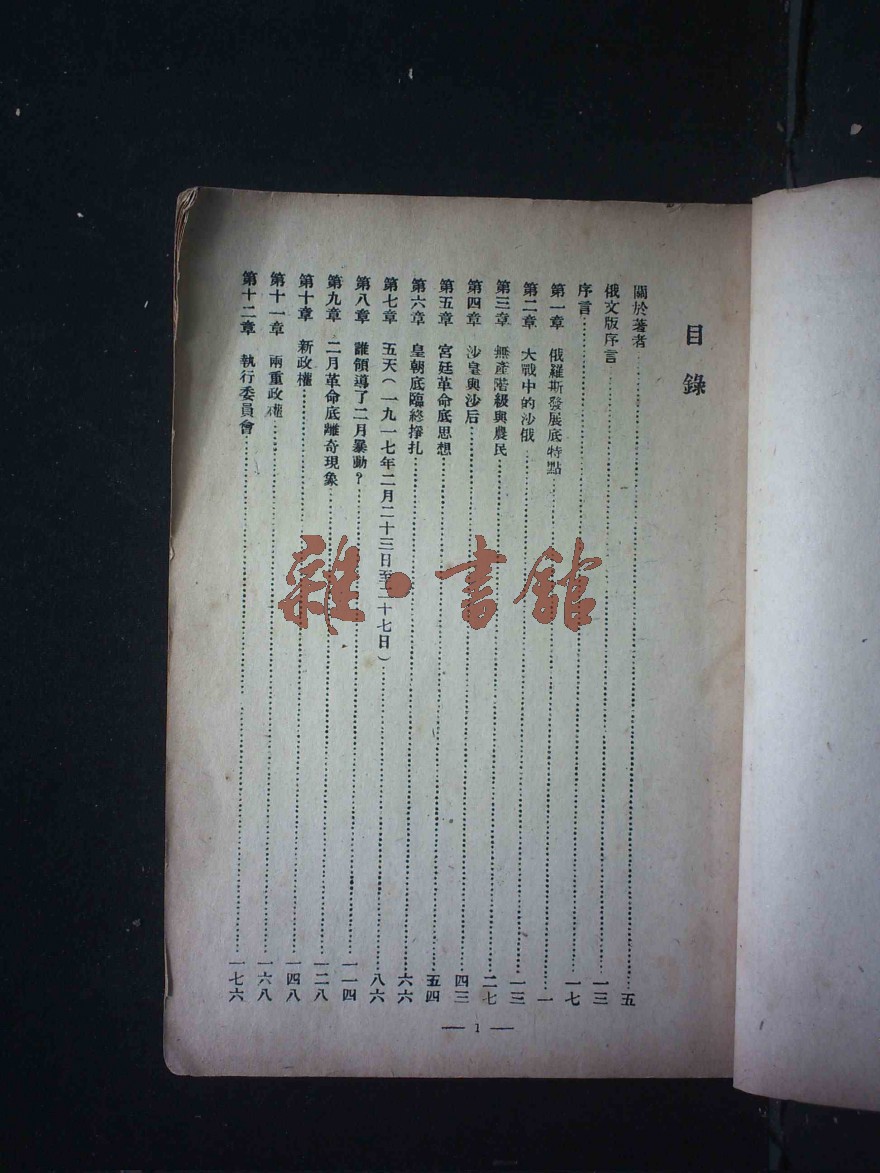 目錄
關於著者……五
俄文版序言……一三
序言……一七
第一章 俄羅斯發展底特點……一
第二章 大戰中的沙俄……一三
第三章 無產階級與農民……二七
第四章 沙皇與沙后……四三
第五章 宮廷革命底思想……五四
第六章 皇朝底臨終掙扎……六六
第七章 五天(一九一七年二月二十三日至二十七日)……八六
第八章 誰領導了二月暴動?……一一四
第九章 二月革命底離奇現象……一二八
第十章 新政權……一四八
第十一章 兩重政權……一六八
第十二章 執行委員會……一七六
— 1 —
雜·書館